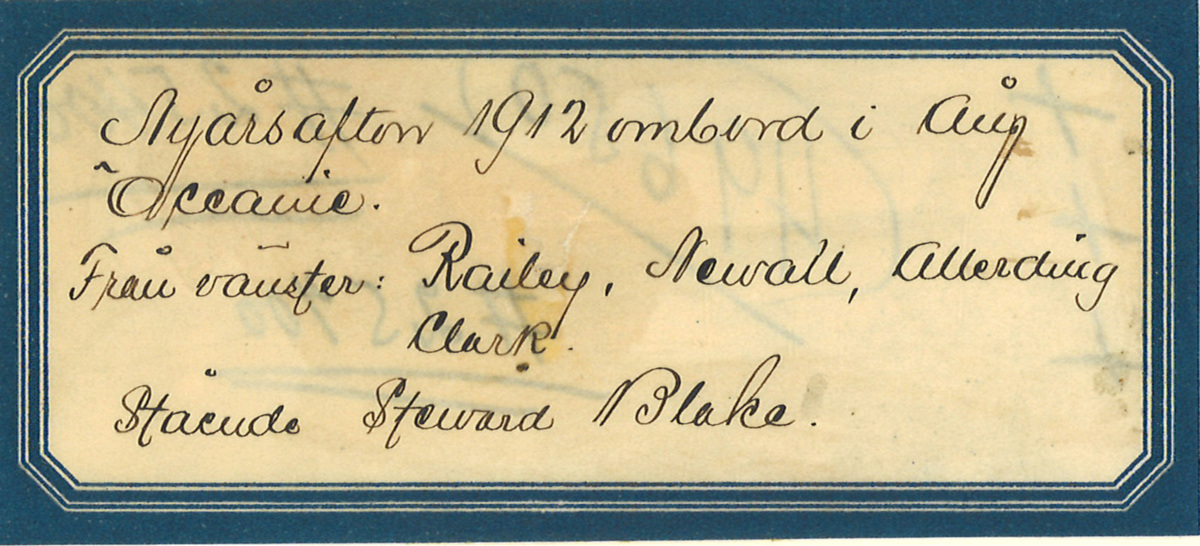 Nyårsafton 1912 ombord i Ång
Oceanic.
Från vänster: Railey, Newall, Allerding
Clark.
Stående Steward Blake.